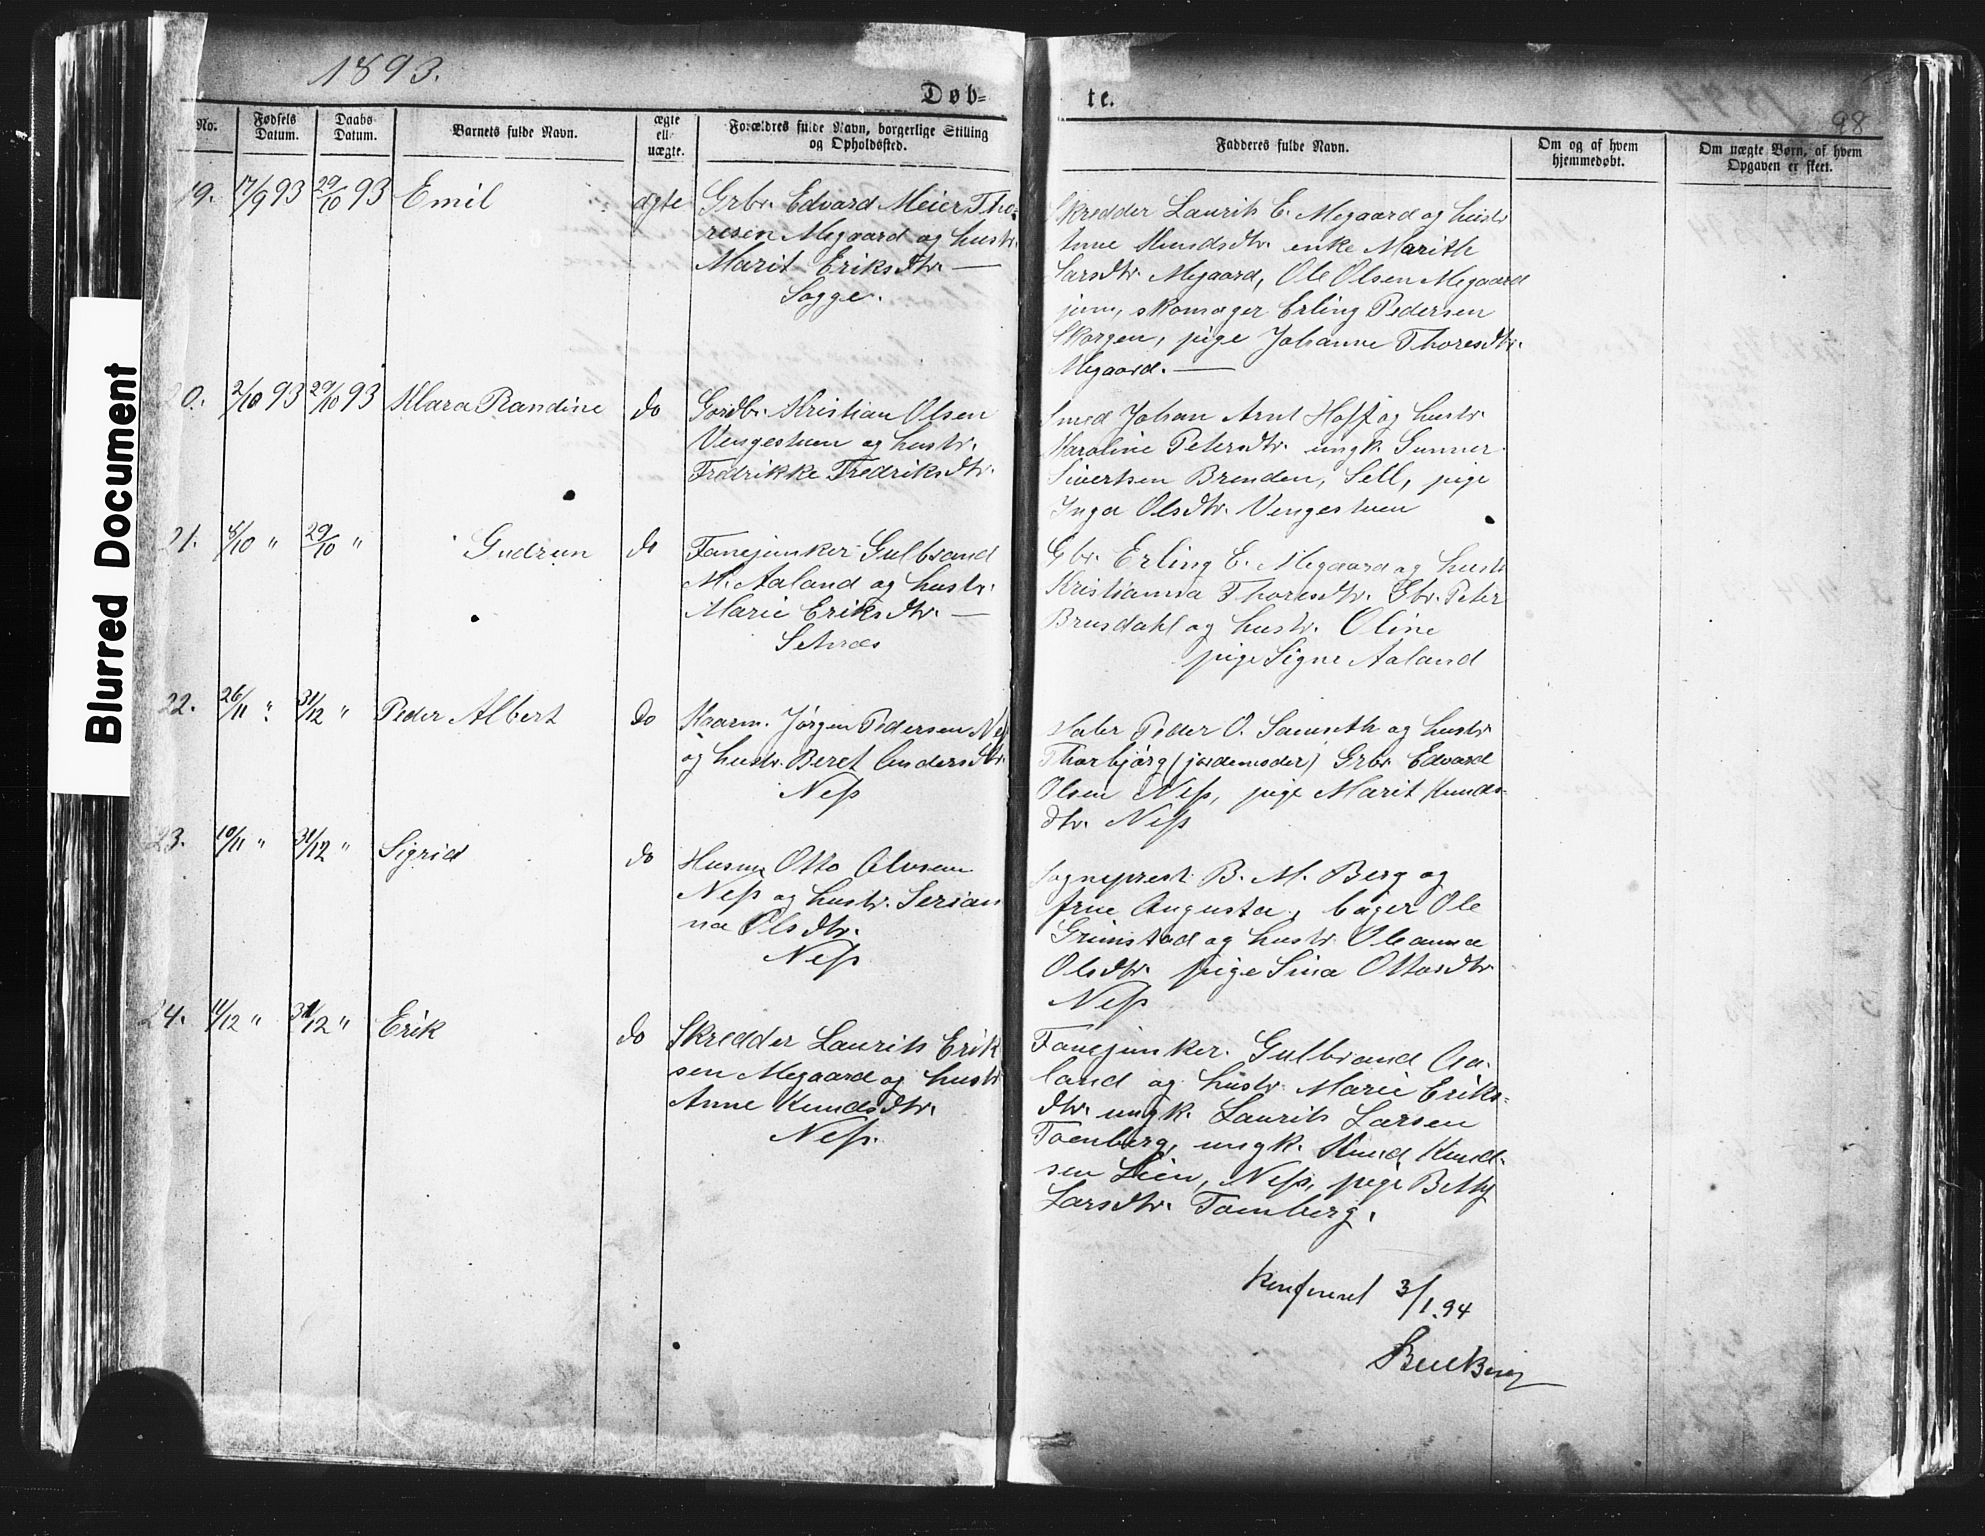 Blurred Document
1893.
Døb=
te.
98
No.
Fødsels Datum.
Daabs Datum.
Barnets fulde Navn.
ægte ell. uægte.
Forældres fulde Navn, borgerlige Stilling og Opholdssted.
Fadderes fulde Navn.
Om og af hvem hjemmedøbt.
Om uægte Børn, af hvem Opgaven er skeet.
19. 17/9 93 29/10 93 Emil ægte
Grbr. Edvard Meier Tho-
resen Megaard og hustr.
Marit Eriksdtr. —
Sogge.
Skredder Laurits E. Megaard og hustr
Anne Knudsdtr. enke Marith
Larsdtr. Megaard, Ole Olsen Megaard
jun., skomager Erling Pedersen
Skorgen, pige Johanne Thoresdtr.
Megaard. —
20. 2/10 93 29/10 93 Klara Randine do
Gordbr. Kristian Olsen
Vengestuen og hustr.
Fredrikke Fredriksdtr.
Smed Johan Arnt Hoff og hustr.
Karoline Petersdtr. ungk. Gunner
Sivertsen Brenden, Sell, pige
Inga Olsdtr. Vengestuen
21. 8/10 " 29/10 " Gudrun do
Fanejunker Gulbrand
M. Aaland og hustr.
Marie Eriksdtr. —
Setnæs
Gbr. Erling E. Megaard og hustr
Kristianna Thoresdtr. Gbr. Peter
Brusdahl og hustr. Oline
pige Signe Aaland
22. 26/11 " 31/12 " Peder Albert do
Kaarm. Jørgen Pedersen Neß
og hustr. Beret Andersdtr.
Neß
Maler Peder O. Sæmoth og hustr
Thorbjørg (jordemoder) Grbr Edvard
Olsen Neß, pige Marit Knuds-
dtr. Neß
23. 10/11 " 31/12 " Sigrid do
Husm. Otto Olvsen
Neß og hustr. Serian
na Olsdtr.
Neß
Sogneprest B. M. Berg og
frue Augusta, bager Ole
Grimstad og hustr Oleanna
Olsdtr. pige Sina Ottosdtr
Neß
24. 11/12 " 31/12 " Erik do
Skredder Laurits Erik
sen Megaard og hustr
Anne Knudsdtr.
Neß.
Fanejunker Gulbrand Aa-
land og hustr. Marie Eriks-
dtr. ungk. Laurits Larsen
Tomberg, ungk. Knud Knud-
sen Lien, Neß, pige Betty
Larsdtr. Tomberg.
Konfereret 3/1 94